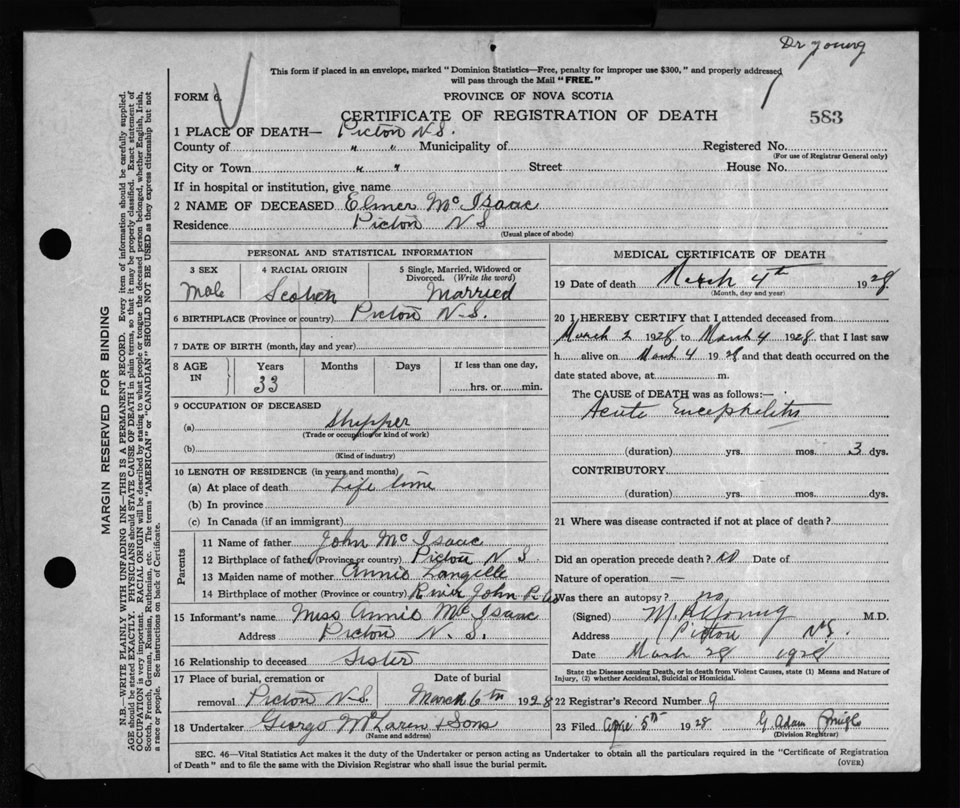 Dr Young
This form if placed in an envelope, marked "Dominion Statistics—Free, penalty for improper use $300," and properly addressed
will pass through the Mail "FREE."
FORM 6.
PROVINCE OF NOVA SCOTIA
CERTIFICATE OF REGISTRATION OF DEATH
583
1 PLACE OF DEATH— Picton N.S.
County of " " Municipality of Registered No.
(For use of Registrar General only)
City or Town " " Street House No.
If in hospital or institution, give name
2 NAME OF DECEASED Elmer Mc Isaac
Residence Picton N S
(Usual place of abode)
PERSONAL AND STATISTICAL INFORMATION
3 SEX 4 RACIAL ORIGIN 5 Single, Married, Widowed or
Divorced. (Write the word)
Male Scotch Married
6 BIRTHPLACE (Province or country) Picton N.S.
7 DATE OF BIRTH (month, day and year)
8 AGE IN Years Months Days If less than one day,
33 hrs. or min.
9 OCCUPATION OF DECEASED
(a) Shipper
(Trade or occupation or kind of work)
(b)
(Kind of industry)
10 LENGTH OF RESIDENCE (in years and months)
(a) At place of death Life time
(b) In province
(c) In Canada (if an immigrant)
Parents
11 Name of father John Mc Isaac
12 Birthplace of father (Province or country) Picton N S.
13 Maiden name of mother Annie Langille
14 Birthplace of mother (Province or country) River John
15 Informant's name Miss Annie Mc Isaac
Address Picton N. S.
16 Relationship to deceased Sister
17 Place of burial, cremation or Date of burial
removal Picton N.S. March 6th 1928
18 Undertaker George McLaren & Sons
(Name and address)
MEDICAL CERTIFICATE OF DEATH
19 Date of death March 4th 1928
(Month, day and year)
20 I HEREBY CERTIFY that I attended deceased from
March 2 1928 to March 4 1928 that I last saw
h alive on March 4 1928 and that death occurred on the
date stated above, at m.
The CAUSE of DEATH was as follows:—
Acute Encephelitis
(duration) yrs. mos. 3 dys.
CONTRIBUTORY
(duration) yrs. mos. dys.
21 Where was disease contracted if not at place of death?
Did an operation precede death? no Date of
Nature of operation —
Was there an autopsy? no
(Signed) Young M.D.
Address Picton NS.
Date March 28 1928
State the Disease causing Death, or in death from Violent Causes, state (1) Means and Nature of
Injury, (2) whether Accidental, Suicidal or Homicidal.
22 Registrar's Record Number 9
23 Filed 5th 1928 G Adam
(Division Registrar)
SEC. 46—Vital Statistics Act makes it the duty of the Undertaker or person acting as Undertaker to obtain all the particulars required in the "Certificate of Registration
of Death" and to file the same with the Division Registrar who shall issue the burial permit.
(OVER)
MARGIN RESERVED FOR BINDING
N.B.—WRITE PLAINLY WITH UNFADING INK—THIS IS A PERMANENT RECORD. Every item of information should be carefully supplied.
AGE should be stated EXACTLY. PHYSICIANS should STATE CAUSE OF DEATH in plain terms, so that it may be properly classified. Exact statement of
OCCUPATION is very important. RACIAL ORIGIN will be described by stating to what people or tongue the deceased person belonged, whether English, Irish,
Scotch, French, German, Russian, Ruthenian, etc. The terms "AMERICAN" or "CANADIAN" SHOULD NOT BE USED as they express citizenship but not
a race or people. See instructions on back of Certificate.